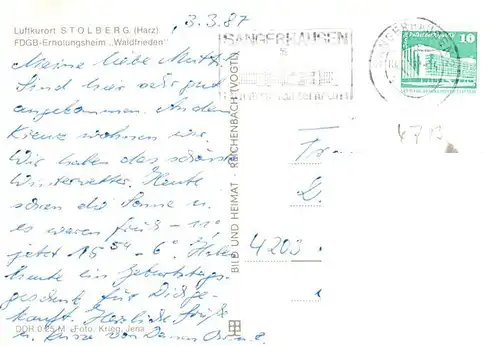 3.3.87
Luftkurort STOLBERG (Harz)
FDGB-Erholungsheim „Waldfrieden"
Meine liebe Mutti
Sind hier sehr gut
angekommen. An dem
Kreuz wohnen wir.
Wir haben das schönste
Winterwetter. Heute
schien die Sonne u.
es waren früh - 11°
jetzt 15 54 - 6°. Habe
heute ein Geburtstags-
geschenk für Dich ge-
kauft. Herzliche Grüße
u. Küsse von Deiner
DDR 0,25 M Foto: Krieg, Jena
BILD UND HEIMAT · REICHENBACH (VOGTL)
SANGERHAUSEN
10
4713
4203